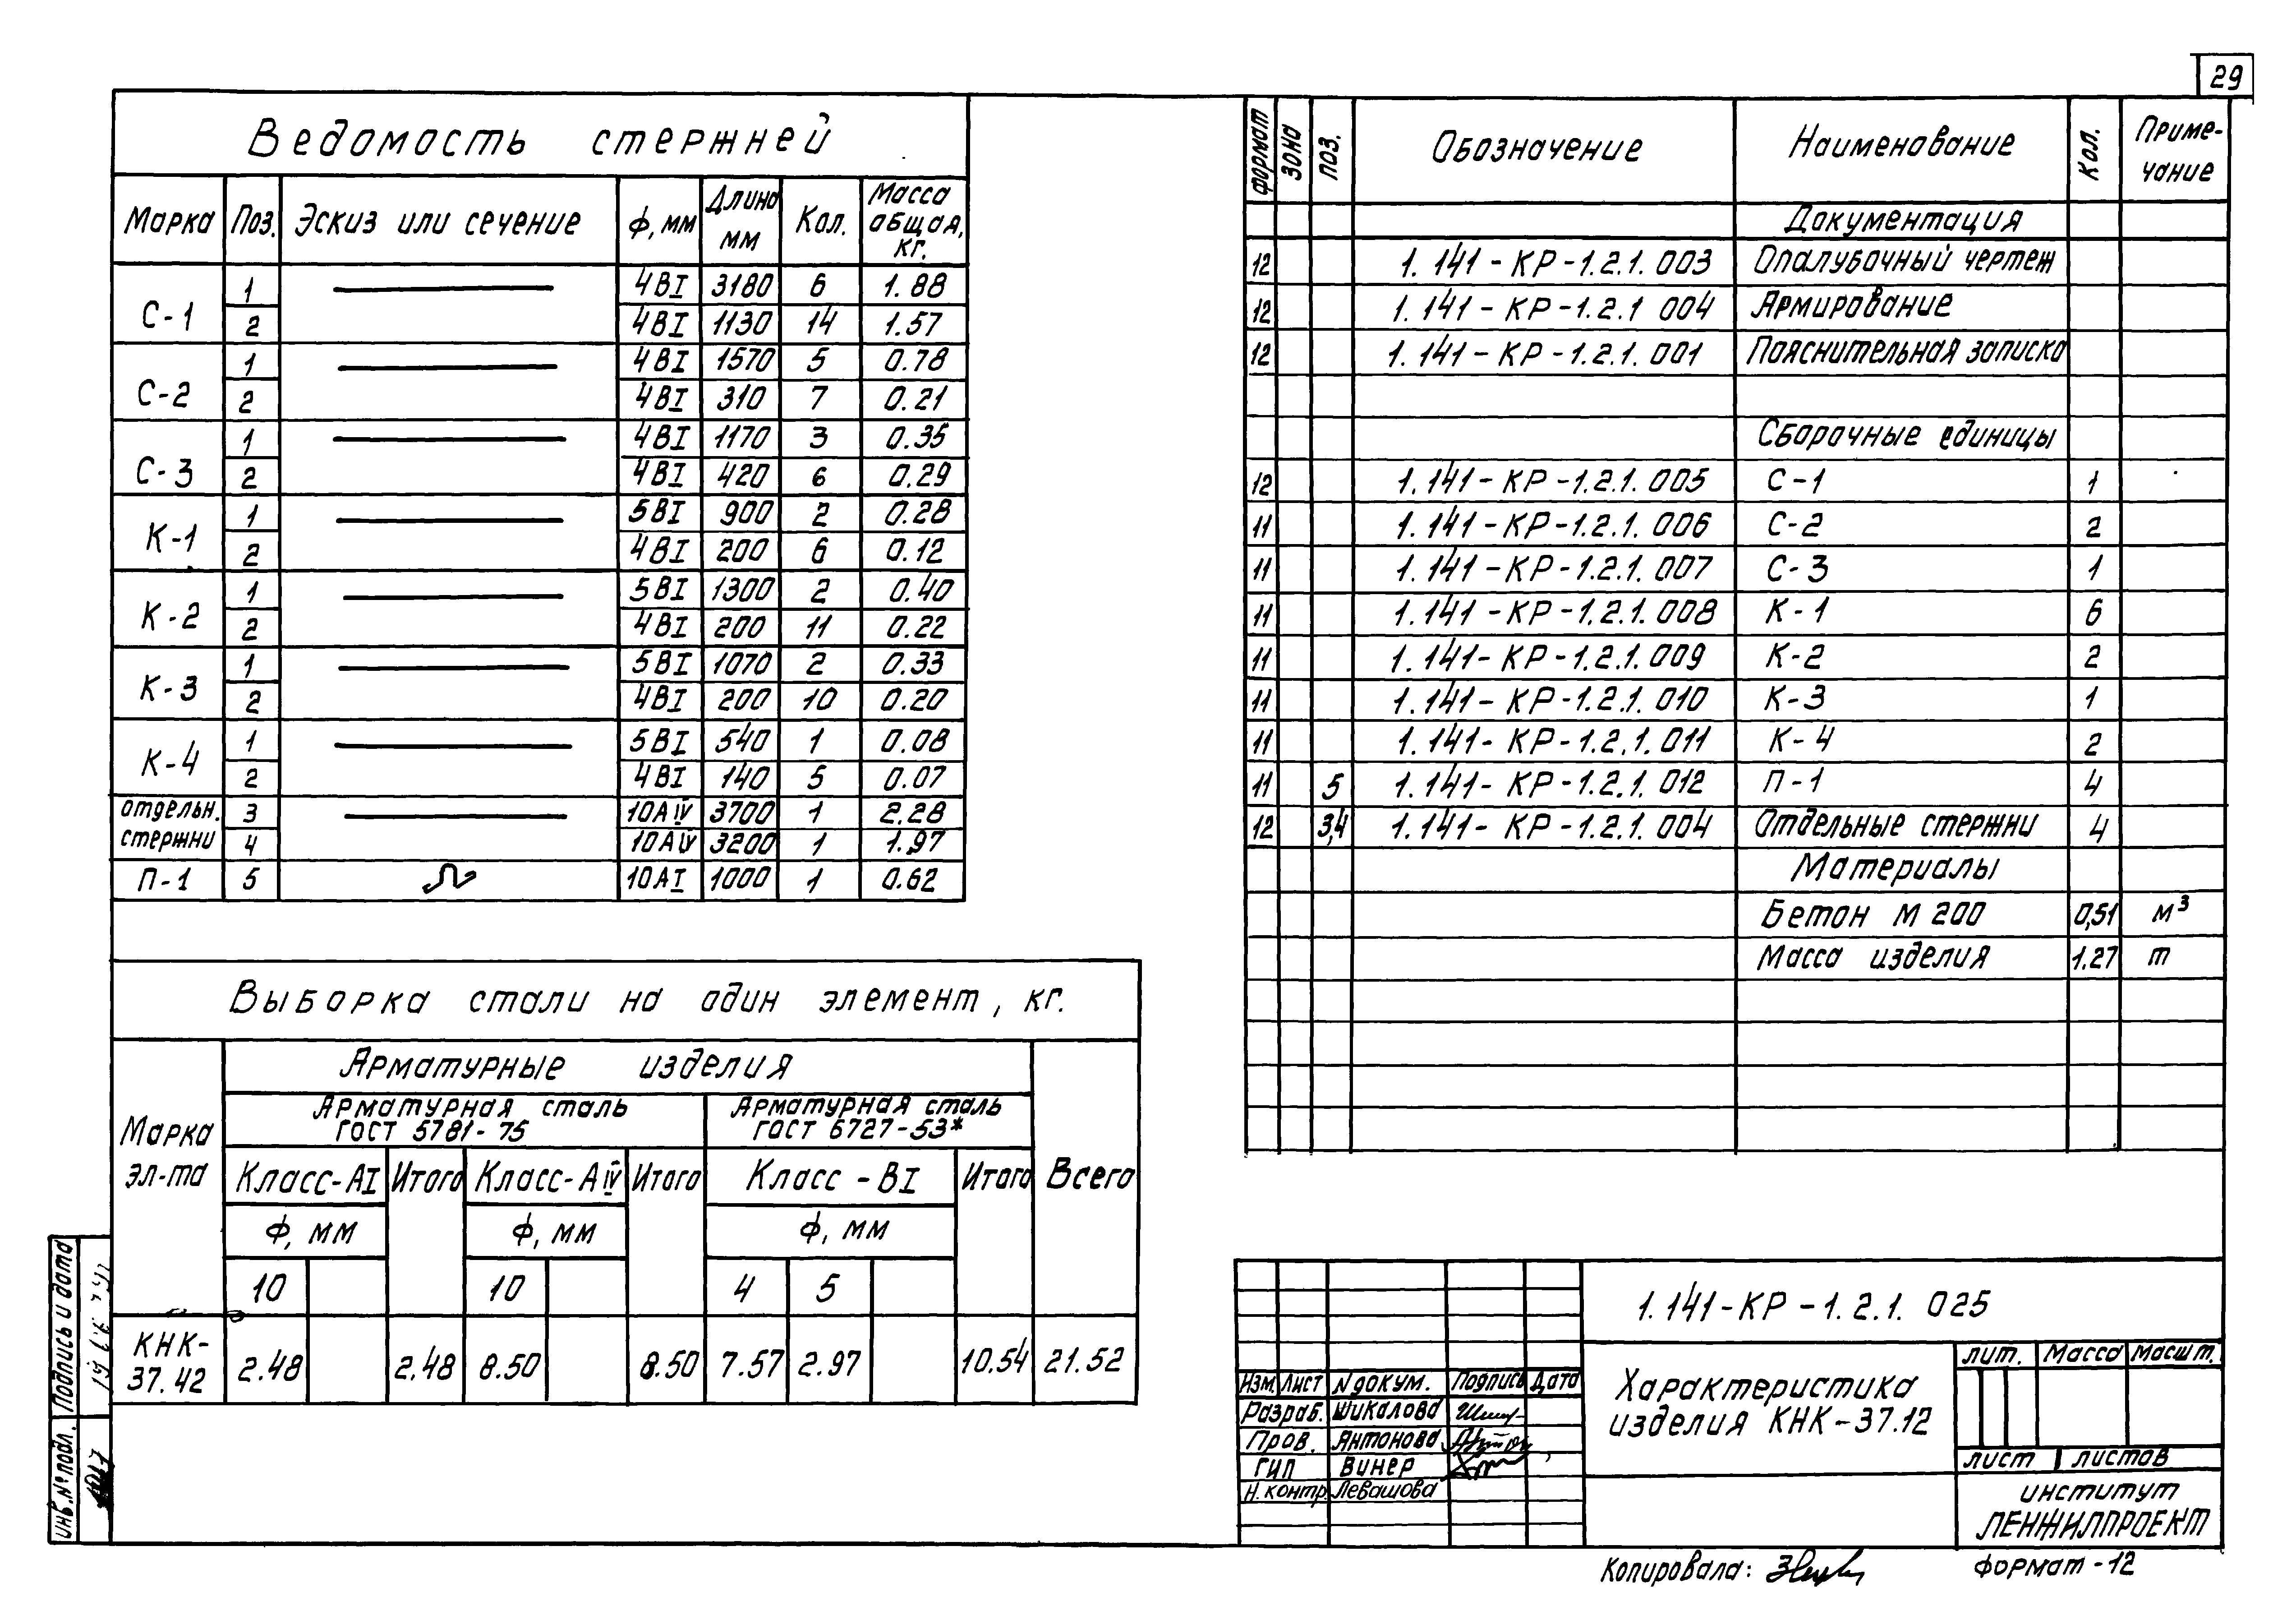 29
Ведомость стержней
Марка Поз. Эскиз или сечение ф, мм Длина мм Кол. Масса общая, кг.
С-1 1 4ВI 3180 6 1.88
2 4ВI 1130 14 1.57
С-2 1 4ВI 1570 5 0.78
2 4ВI 310 7 0.21
С-3 1 4ВI 1170 3 0.35
2 4ВI 420 6 0.29
К-1 1 5ВI 900 2 0.28
2 4ВI 200 6 0.12
К-2 1 5ВI 1300 2 0.40
2 4ВI 200 11 0.22
К-3 1 5ВI 1070 2 0.33
2 4ВI 200 10 0.20
К-4 1 5ВI 540 1 0.08
2 4ВI 140 5 0.07
отдельн. 3 10АIV 3700 1 2.28
стержни 4 10АIV 3200 1 1.97
П-1 5 10АI 1000 1 0.62
Выборка стали на один элемент, кг.
Марка эл-та
Арматурные изделия
Всего
Арматурная сталь ГОСТ 5781-75
Арматурная сталь ГОСТ 6727-53*
Класс-АI Итого Класс-АIV Итого Класс-ВI Итого
Ф, мм Ф, мм Ф, мм
10 10 4 5
КНК-37.42 2.48 2.48 8.50 8.50 7.57 2.97 10.54 21.52
формат зона поз. Обозначение Наименование Кол. Приме-
чание
Документация
12 1.141-КР-1.2.1.003 Опалубочный чертеж
12 1.141-КР-1.2.1 004 Армирование
12 1.141-КР-1.2.1.001 Пояснительная записка
Сборочные единицы
12 1.141-КР-1.2.1.005 С-1 1
11 1.141-КР-1.2.1.006 С-2 2
11 1.141-КР-1.2.1.007 С-3 1
11 1.141-КР-1.2.1.008 К-1 6
11 1.141-КР-1.2.1.009 К-2 2
11 1.141-КР-1.2.1.010 К-3 1
11 1.141-КР-1.2.1.011 К-4 2
11 5 1.141-КР-1.2.1.012 П-1 4
12 3,4 1.141-КР-1.2.1.004 Отдельные стержни 4
Материалы
Бетон М 200 0,51 м³
Масса изделия 1.27 т
1.141-КР-1.2.1. 025
Характеристика
изделия КНК-37.12
лит. Масса Масшт.
лист листов
институт
ЛЕНЖИЛПРОЕКТ
Изм. Лист N докум. Подпись Дата
Разраб. Шикалова
Пров. Антонова
ГИП Винер
Н. контр. Левашова
Копировала:
Формат-12
Подпись и дата
инв. № подл.